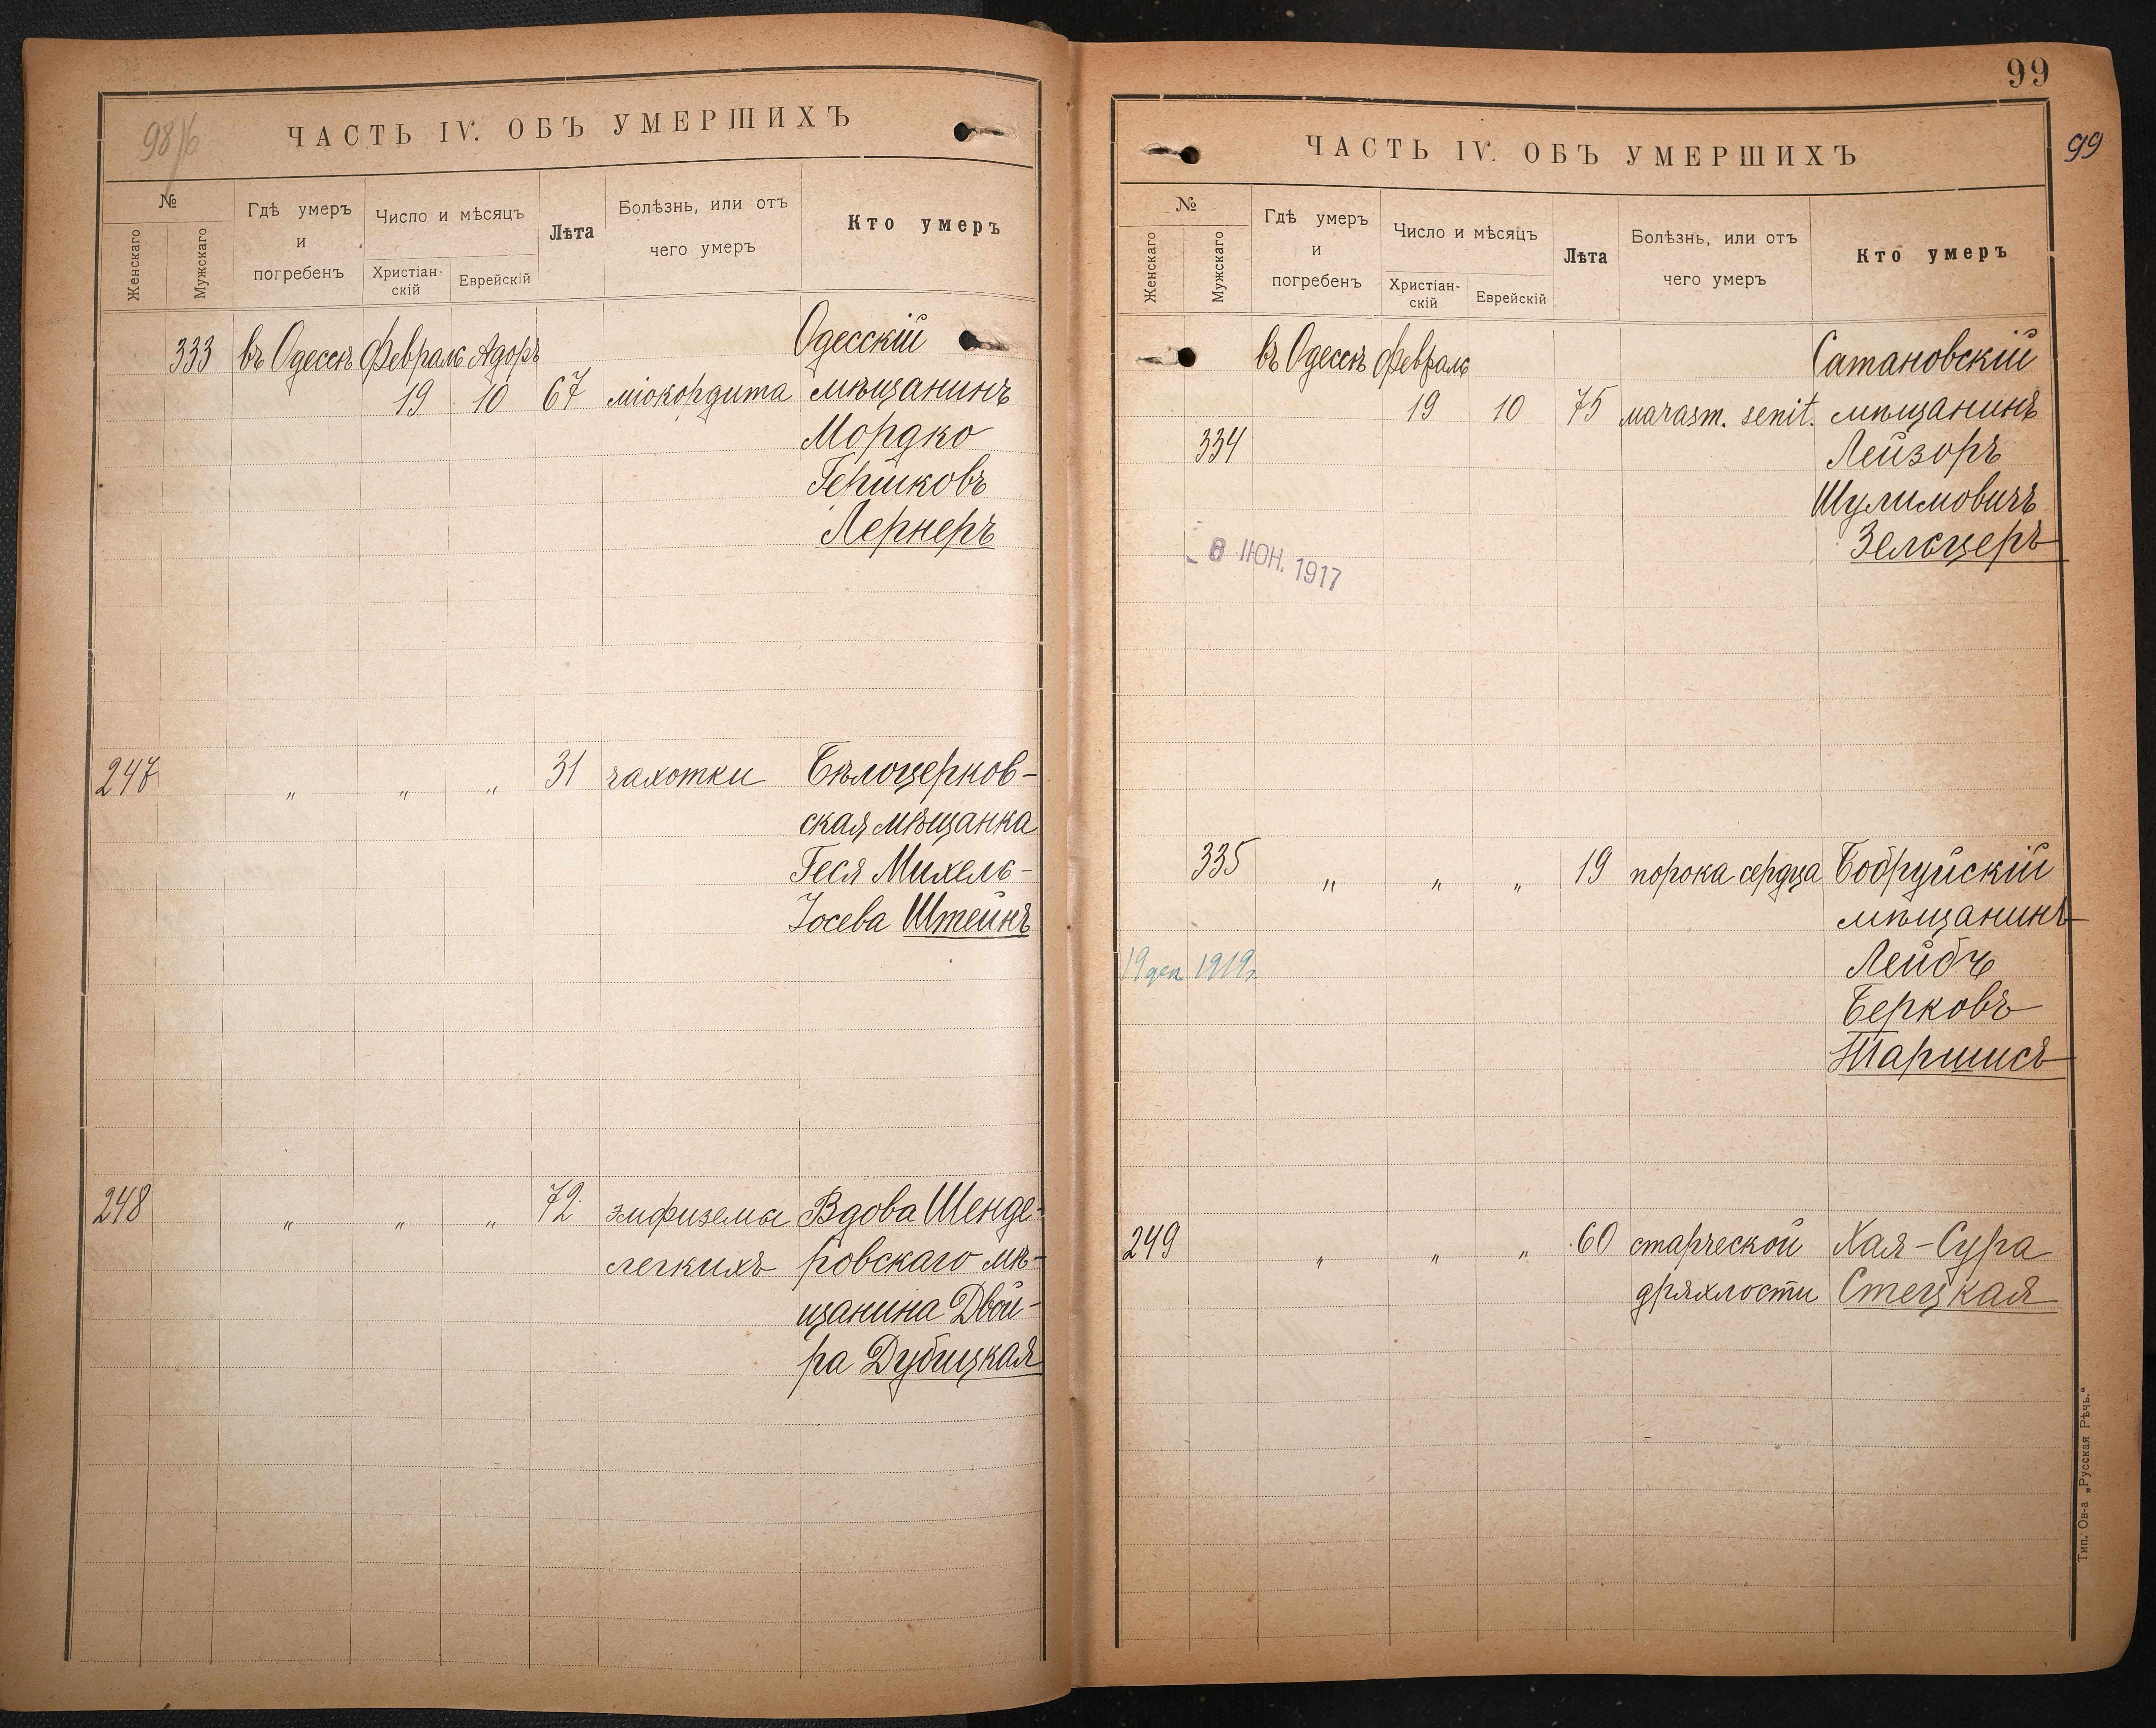 98/б
ЧАСТЬ IV. ОБЪ УМЕРШИХЪ
№
Женскаго
Мужскаго
Гдѣ умеръ
и
погребенъ
Число и мѣсяцъ
Христіан-
скій
Еврейскій
Лѣта
Болѣзнь, или отъ
чего умеръ
Кто умеръ
333 въ Одессѣ Февраль Адоръ Одесскій
19 10 67 міокордита мѣщанинъ
Мордко
Гершковъ
Лернеръ
247 „ „ „ 31 чахотки Бѣлоцерков-
ская мѣщанка
Геся Михель-
Іосева Штейнъ
248 „ „ „ 72 эмфиземы Вдова Шенде-
легкихъ ровскаго мѣ-
щанина Двой-
ра Дубицкая
99
99
ЧАСТЬ IV. ОБЪ УМЕРШИХЪ
№
Женскаго
Мужскаго
Гдѣ умеръ
и
погребенъ
Число и мѣсяцъ
Христіан-
скій
Еврейскій
Лѣта
Болѣзнь, или отъ
чего умеръ
Кто умеръ
въ Одессѣ Февраль Сатановскій
19 10 75 marasm. senil. мѣщанинъ
334 Лейзоръ
Шулимовичъ
Зельцеръ
8 ІЮН. 1917
335 „ „ „ 19 порока сердца Бобруйскій
мѣщанинъ
19 дек. 1919г. Лейбъ
Берковъ
Таршисъ
249 „ „ „ 60 старческой Хая-Сура
дряхлости Стецкая
Тип. Ов-а „Русская Рѣчь.“